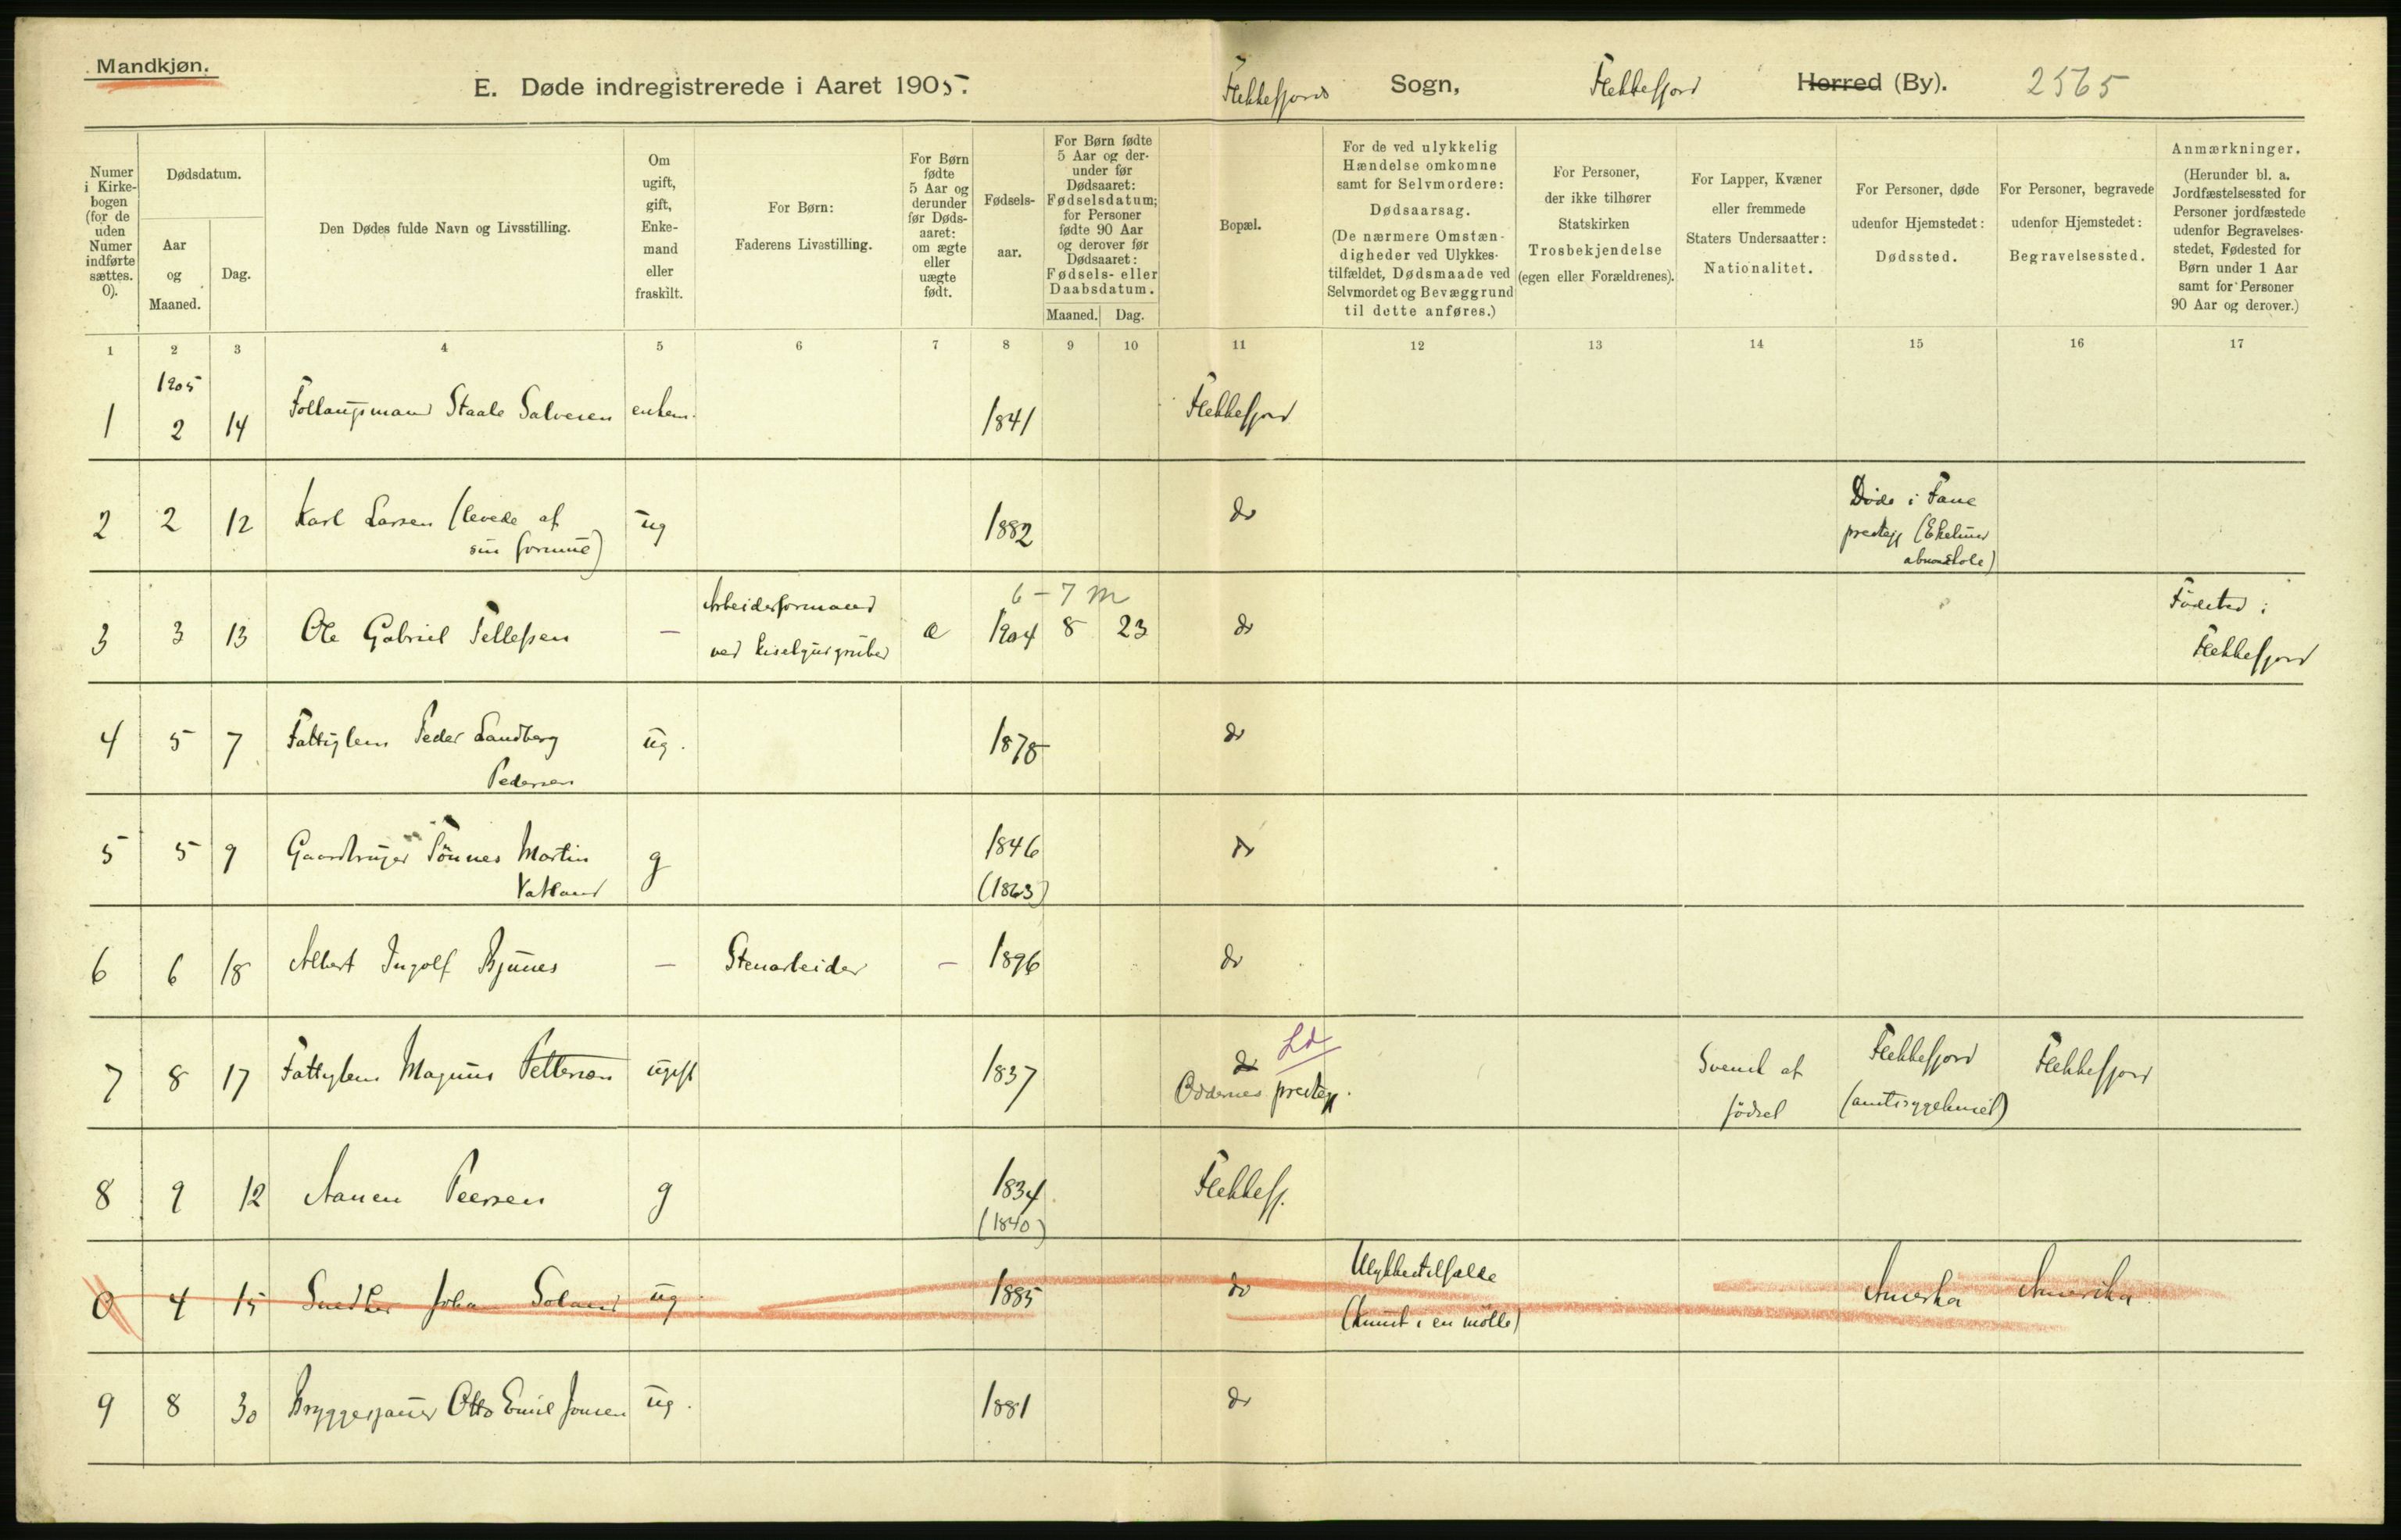 Mandkjøn.
E. Døde indregistrerede i Aaret 1905. Flekkefjords Sogn, Flekkefjord Herred (By). 2565
Numer i Kirkebogen (for de uden Numer indførte sættes. 0).
Dødsdatum.
Aar og Maaned.
Dag.
Den Dødes fulde Navn og Livsstilling.
Om ugift, gift, Enkemand eller fraskilt.
For Børn: Faderens Livsstilling.
For Børn fødte 5 Aar og derunder før Dødsaaret: om ægte eller uægte født.
Fødselsaar.
For Børn fødte 5 Aar og derunder før Dødsaaret: Fødselsdatum; for Personer fødte 90 Aar og derover før Dødsaaret: Fødsels- eller Daabsdatum.
Maaned. Dag.
Bopæl.
For de ved ulykkelig Hændelse omkomne samt for Selvmordere: Dødsaarsag. (De nærmere Omstændigheder ved Ulykkestilfældet, Dødsmaade ved Selvmordet og Bevæggrund til dette anføres.)
For Personer, der ikke tilhører Statskirken Trosbekjendelse (egen eller Forældrenes).
For Lapper, Kvæner eller fremmede Staters Undersaatter: Nationalitet.
For Personer, døde udenfor Hjemstedet: Dødssted.
For Personer, begravede udenfor Hjemstedet: Begravelsessted.
Anmærkninger. (Herunder bl. a. Jordfæstelsessted for Personer jordfæstede udenfor Begravelsesstedet, Fødested for Børn under 1 Aar samt for Personer 90 Aar og derover.)
1 2 3 4 5 6 7 8 9 10 11 12 13 14 15 16 17
1905
1 2 14 Staale Salvesen enkem. 1841 Flekkefjord
2 2 12 Karl Larsen (levede af ug 1882 do Døde i Fane
sin formue) prestegj (Ekelund
abnormskole)
6-7 m
3 3 13 Ole Gabriel Tellefsen — Arbeidsformand æ 1904 8 23 do Fødested i
ved kiselgurgruber Flekkefjord
4 5 7 Fattiglem Peder Sandberg ug. 1878 do
Pedersen
5 5 9 Gaardbruger Tønnes Martin g 1846 do
Vatland (1863)
6 6 18 Albert Ingolf Bjunes — Stenarbeider — 1896 do
Ld
7 8 17 Fattiglem Magnus Petterson ugift 1837 do Svensk af Flekkefjord Flekkefjord
Oddernes prestegj. fødsel (amtssygehuset)
8 9 12 Aanen Peersen g 1834 Flekkefj.
(1840)
0 4 15 Snedker Johan Soland ug 1885 do Ulykkestilfælde Amerika Amerika
(knust i en mølle)
9 8 30 Bryggesjauer Otto Emil Jonsen ug. 1881 do